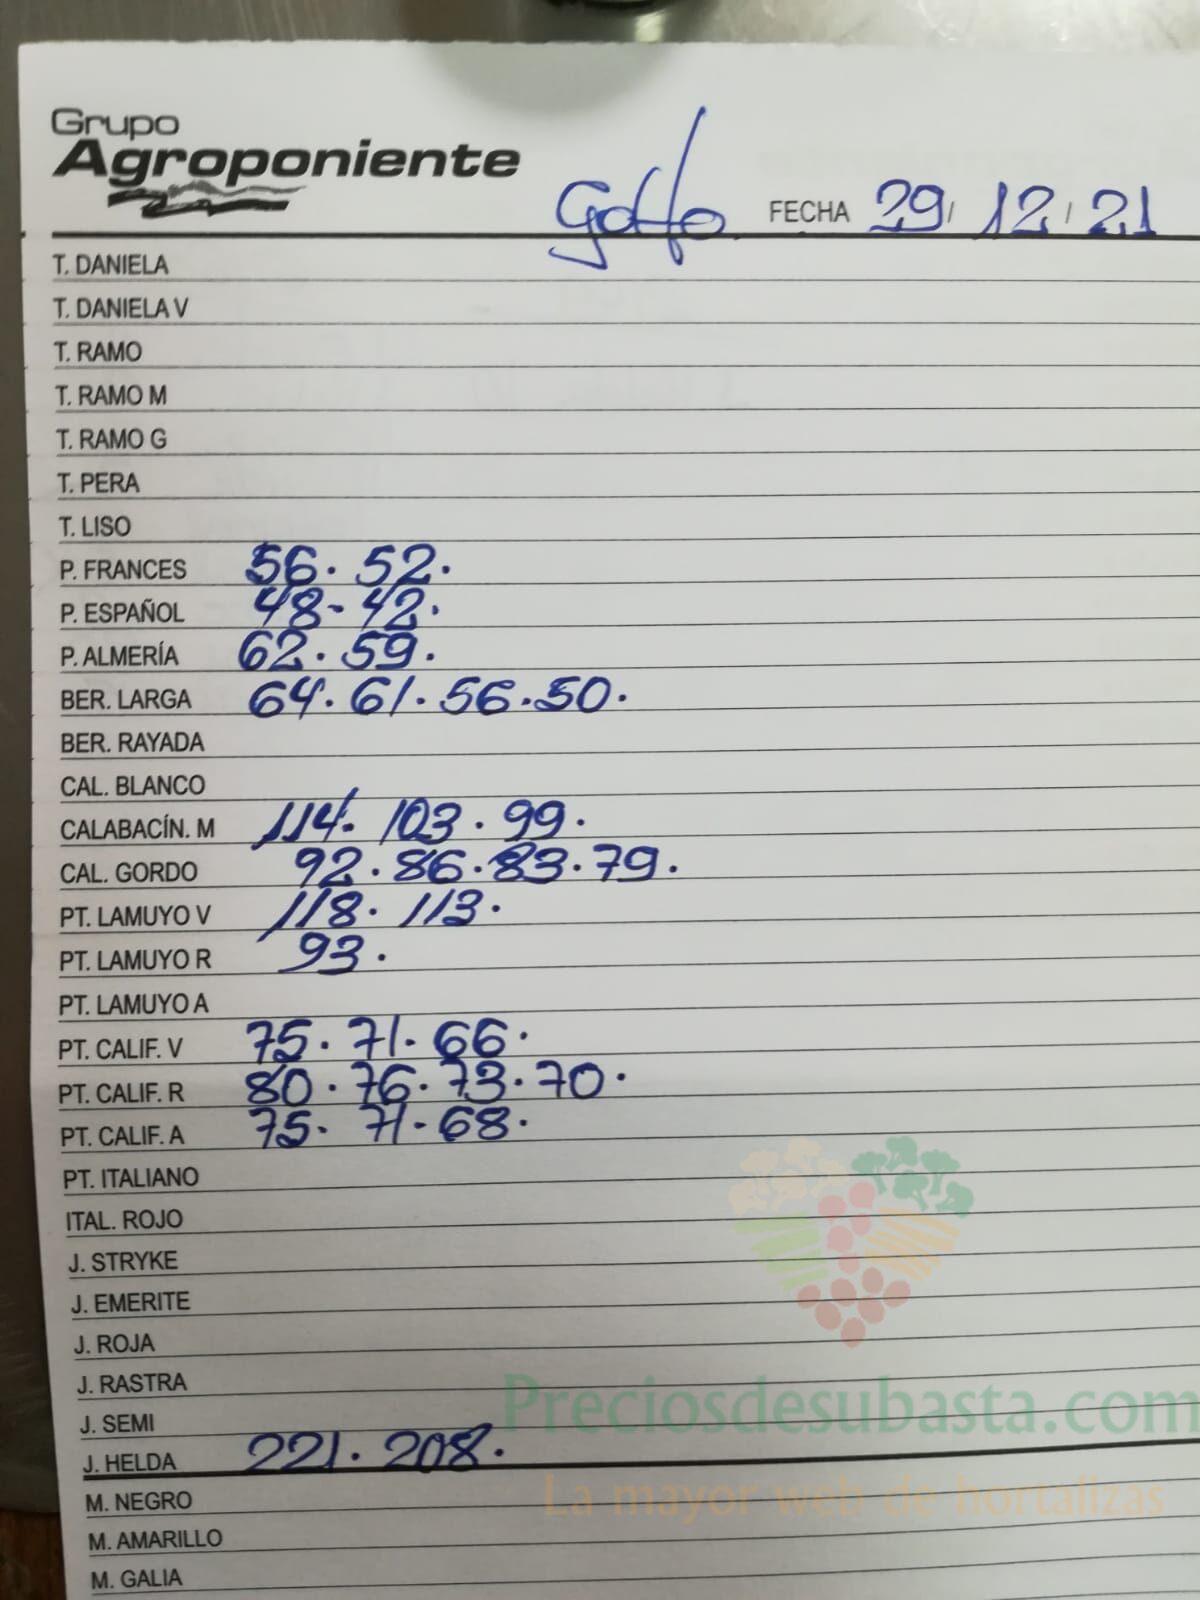 Grupo
Agroponiente
Golfo FECHA 29/ 12/ 21
T. DANIELA
T. DANIELA V
T. RAMO
T. RAMO M
T. RAMO G
T. PERA
T. LISO
P. FRANCES 56. 52.
P. ESPAÑOL 48- 42.
P. ALMERÍA 62. 59.
BER. LARGA 64. 61. 56. 50.
BER. RAYADA
CAL. BLANCO
CALABACÍN. M 114. 103. 99.
CAL. GORDO 92. 86. 83. 79.
PT. LAMUYO V 118. 113.
PT. LAMUYO R 93.
PT. LAMUYO A
PT. CALIF. V 75. 71. 66.
PT. CALIF. R 80. 76. 73. 70.
PT. CALIF. A 75. 71. 68.
PT. ITALIANO
ITAL. ROJO
J. STRYKE
J. EMERITE
J. ROJA
J. RASTRA
J. SEMI
Preciosdesubasta.com
J. HELDA 221. 208.
La mayor web de hortalizas
M. NEGRO
M. AMARILLO
M. GALIA